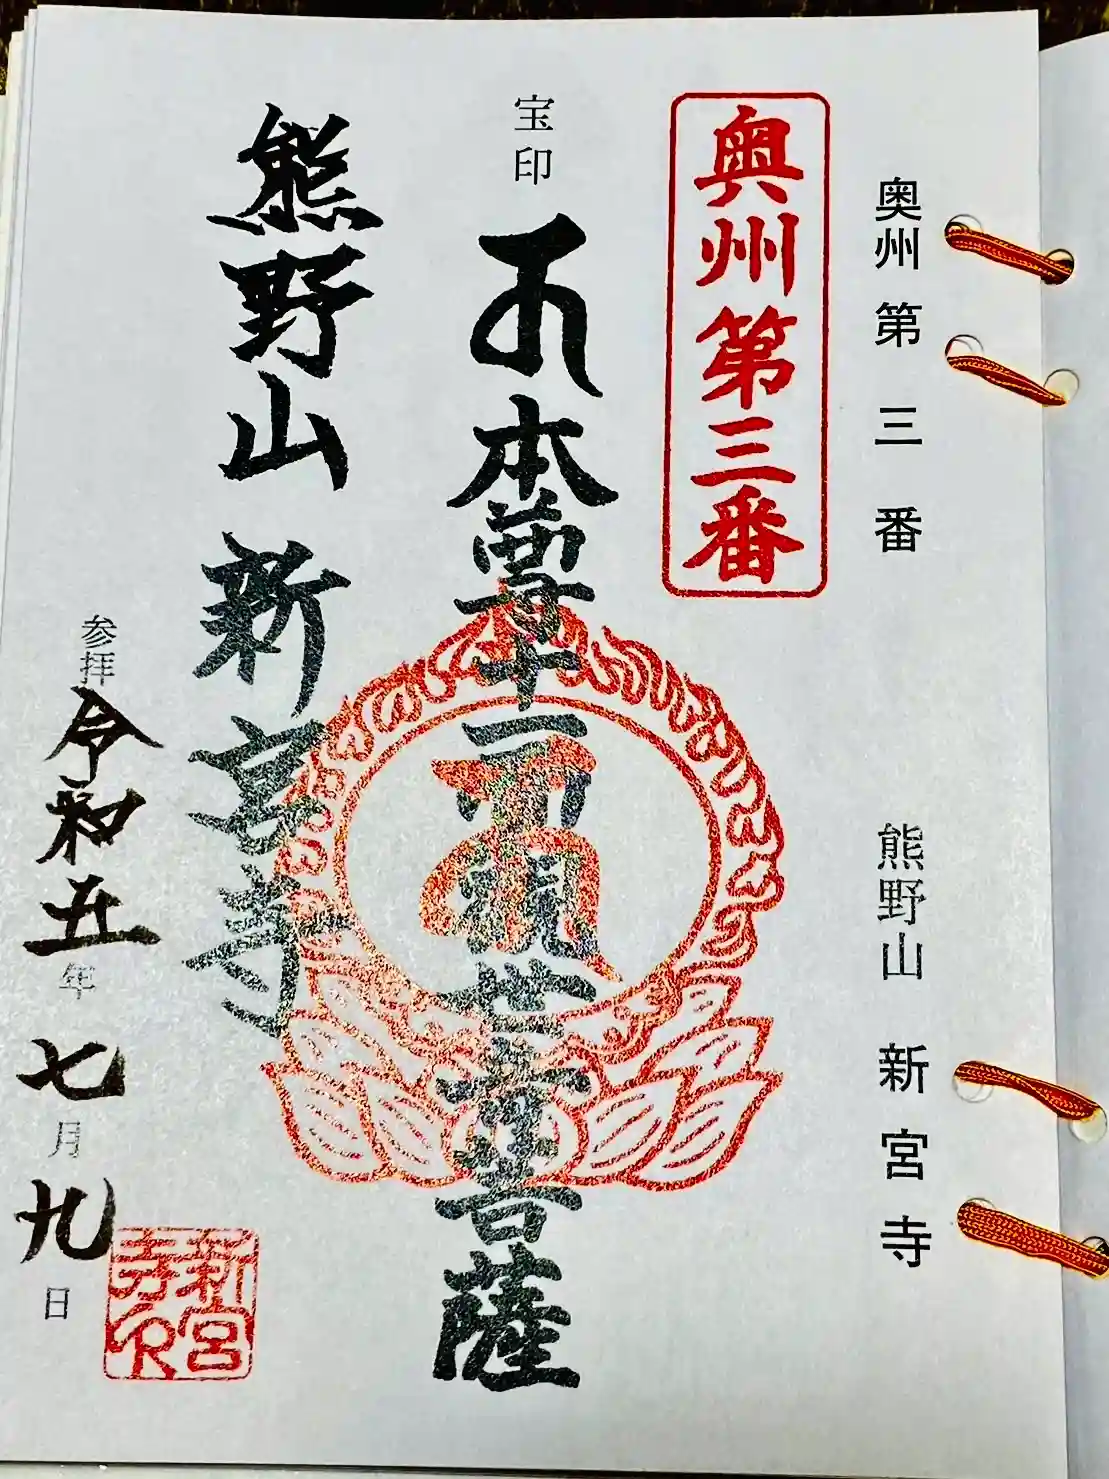 奥州第三番
熊野山 新宮寺
奥州第三番
宝印
本尊十一面観世音菩薩
熊野山 新宮寺
参拝 令和五年七月九日
新宮寺印